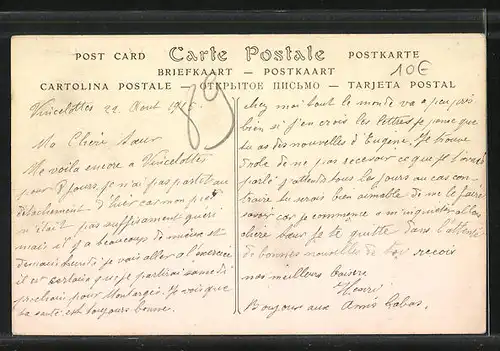 POST CARD Carte Postale POSTKARTE
BRIEFKAART — POSTKAART
CARTOLINA POSTALE — ОТКРЫТОЕ ПИСЬМО — TARJETA POSTAL
10€
89
Vincelottes 22 Aout 1915
Ma Chère Sœur
Me voila encore à Vincelottes
pour 8 jours, je n'ai pas partet au
détachement d'hier car mon pied
n'était pas suffisament guéri
mais il y a beaucoup de mieux et
demain lundi je vais aller a l'exercice
il est certain que je partirai samedi
prochain pour Montargis. Je vois que
ta santé est toujours bonne.
chez moi tout le monde va a peu près
bien si j'en crois les lettres je pense que
tu as des nouvelles d'Eugène. Je trouve
drole de ne pas recevoir ce que je t'avais
parlé j'attends tous les jours au cas con-
traire tu serais bien aimable de me le faire
savoir car je commence a m'inquieter allons
chère Sœur je te quitte dans l'attente
de bonnes nouvelles de toi reçois
nos meilleurs baisers
Henri
Bonjour aux Amis Labas.